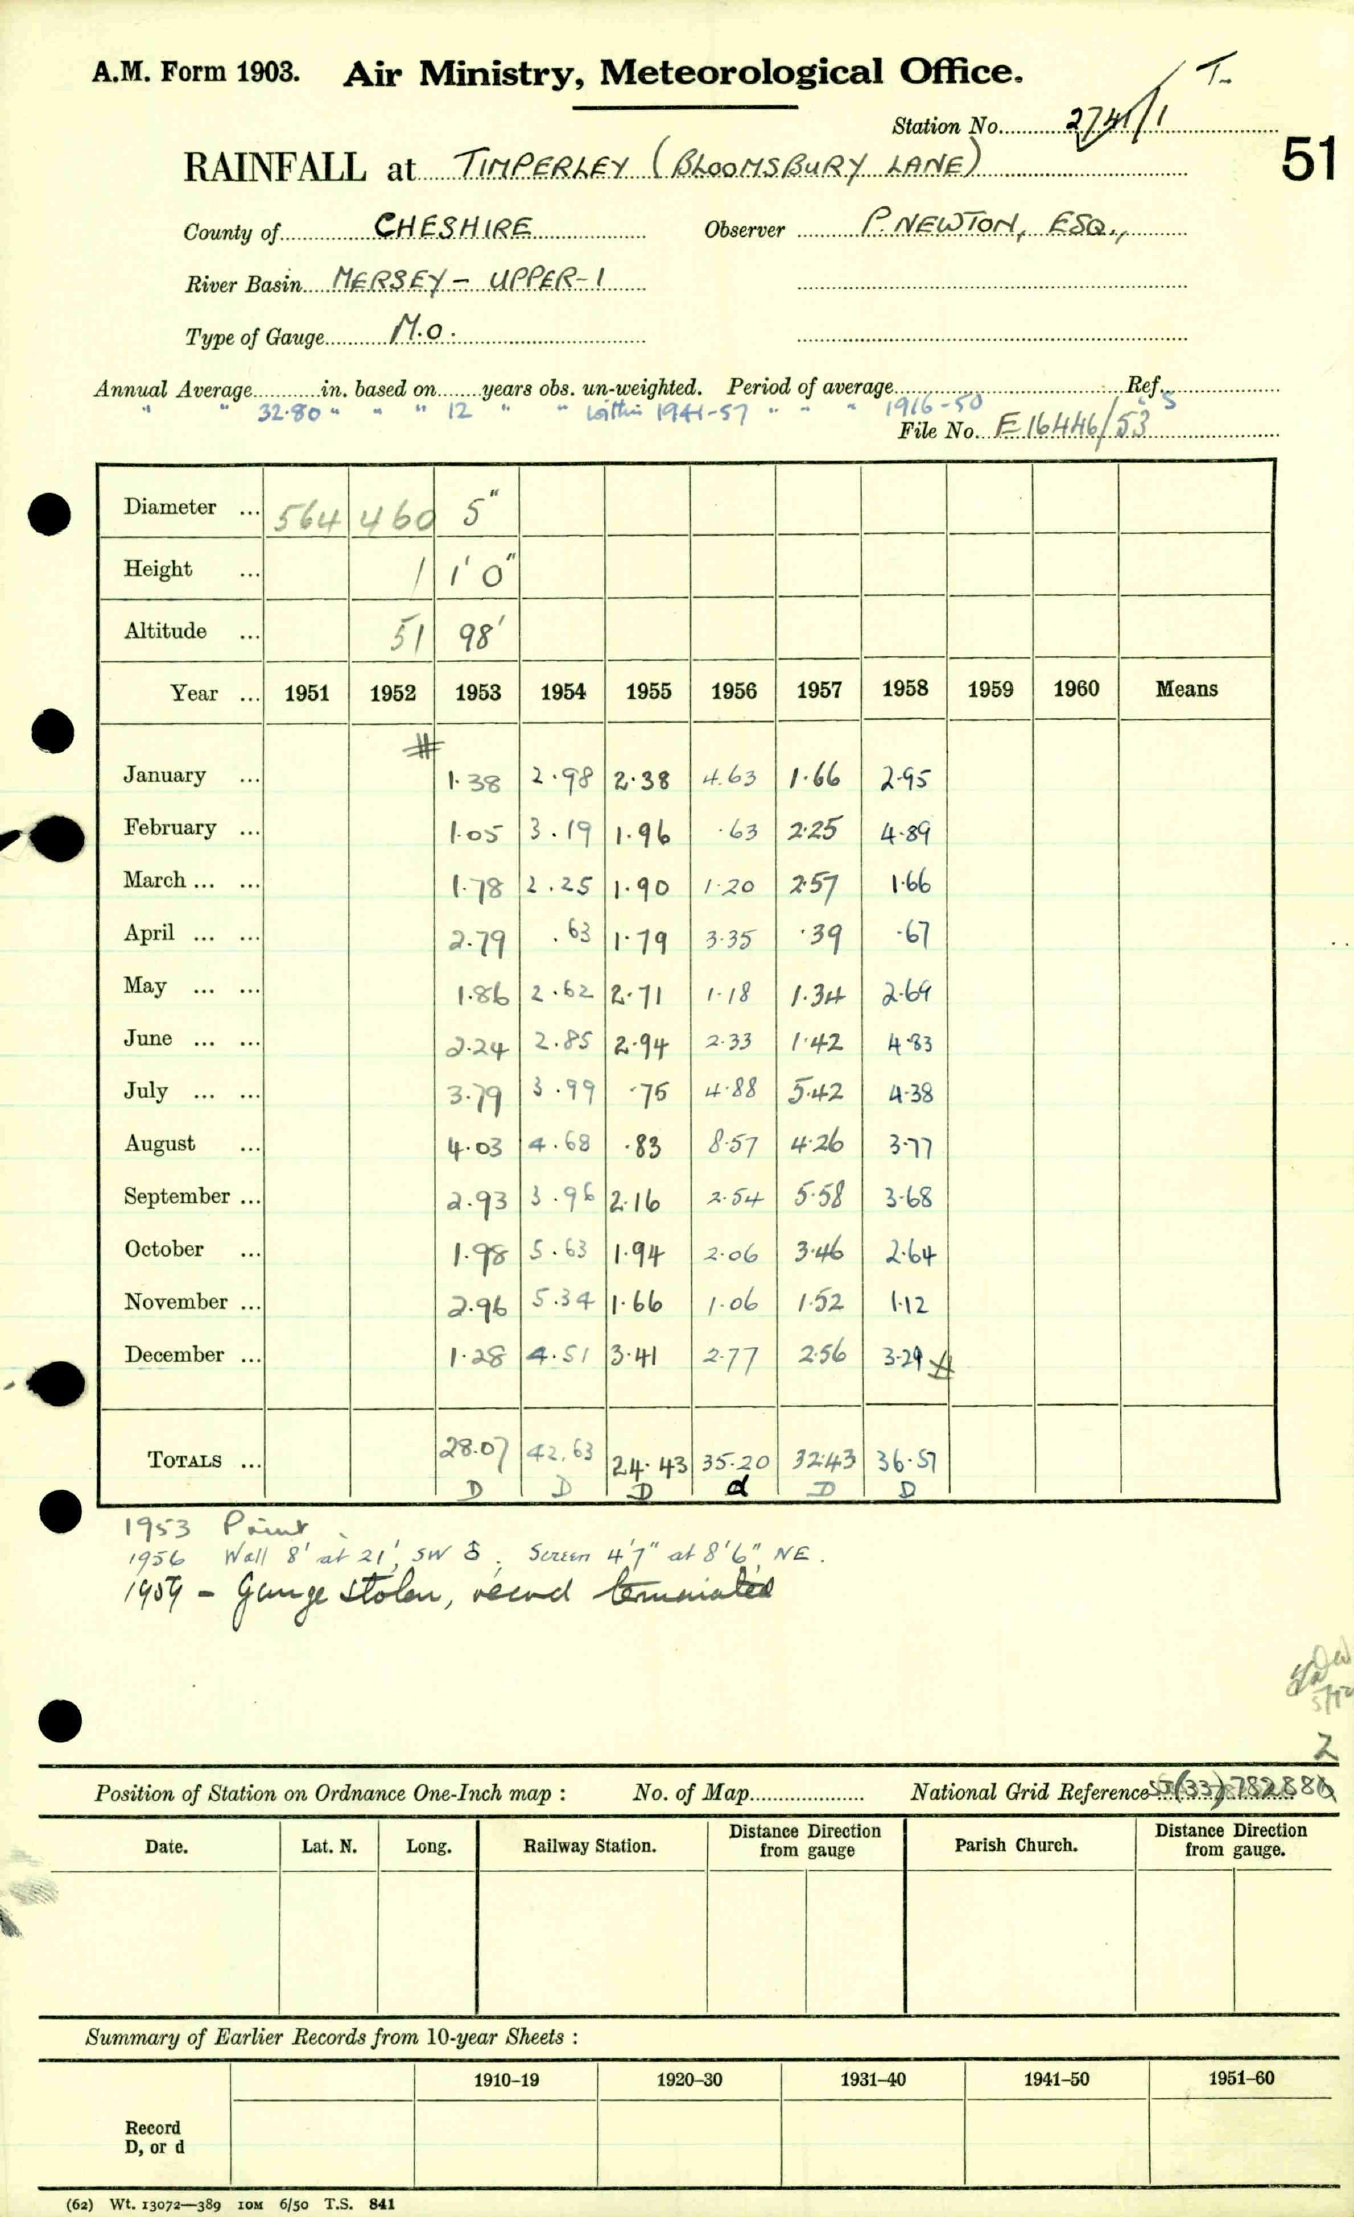 A.M. Form 1903. Air Ministry, Meteorological Office. T.
Station No. 2741/1
51
RAINFALL at TIMPERLEY (BLOOMSBURY LANE)
County of CHESHIRE Observer P. NEWTON, ESQ.,
River Basin MERSEY - UPPER - 1
Type of Gauge M.O.
Annual Average in. based on years obs. un-weighted. Period of average Ref.
" " 32.80 " " " 12 " " within 1941-57 " " " 1916-50 S
File No. E 16446/53
Diameter ... 564 460 5"
Height ... 1 1' 0"
Altitude ... 51 98'
Year ... 1951 1952 1953 1954 1955 1956 1957 1958 1959 1960 Means
January ... 1.38 2.98 2.38 4.63 1.66 2.95
February ... 1.05 3.19 1.96 .63 2.25 4.89
March ... ... 1.78 2.25 1.90 1.20 2.57 1.66
April ... ... 2.79 .63 1.79 3.35 .39 .67
May ... ... 1.86 2.62 2.71 1.18 1.34 2.69
June ... ... 2.24 2.85 2.94 2.33 1.42 4.83
July ... ... 3.79 3.99 .75 4.88 5.42 4.38
August ... 4.03 4.68 .83 8.57 4.26 3.77
September ... 2.93 3.96 2.16 2.54 5.58 3.68
October ... 1.98 5.63 1.94 2.06 3.46 2.64
November ... 2.96 5.34 1.66 1.06 1.52 1.12
December ... 1.28 4.51 3.41 2.77 2.56 3.29
TOTALS ... 28.07 42.63 24.43 35.20 32.43 36.57
D D D d D D
1953 Point
1956 Wall 8' at 21', SW. Screen 4'7" at 8'6", NE.
1959 - Gauge stolen, record terminated
Z
Position of Station on Ordnance One-Inch map : No. of Map National Grid Reference (33) 782 88
Date. Lat. N. Long. Railway Station. Distance from Direction gauge Parish Church. Distance from Direction gauge.
Summary of Earlier Records from 10-year Sheets :
1910–19 1920–30 1931–40 1941–50 1951–60
Record
D, or d
(62) Wt. 13072—389 10M 6/50 T.S. 841